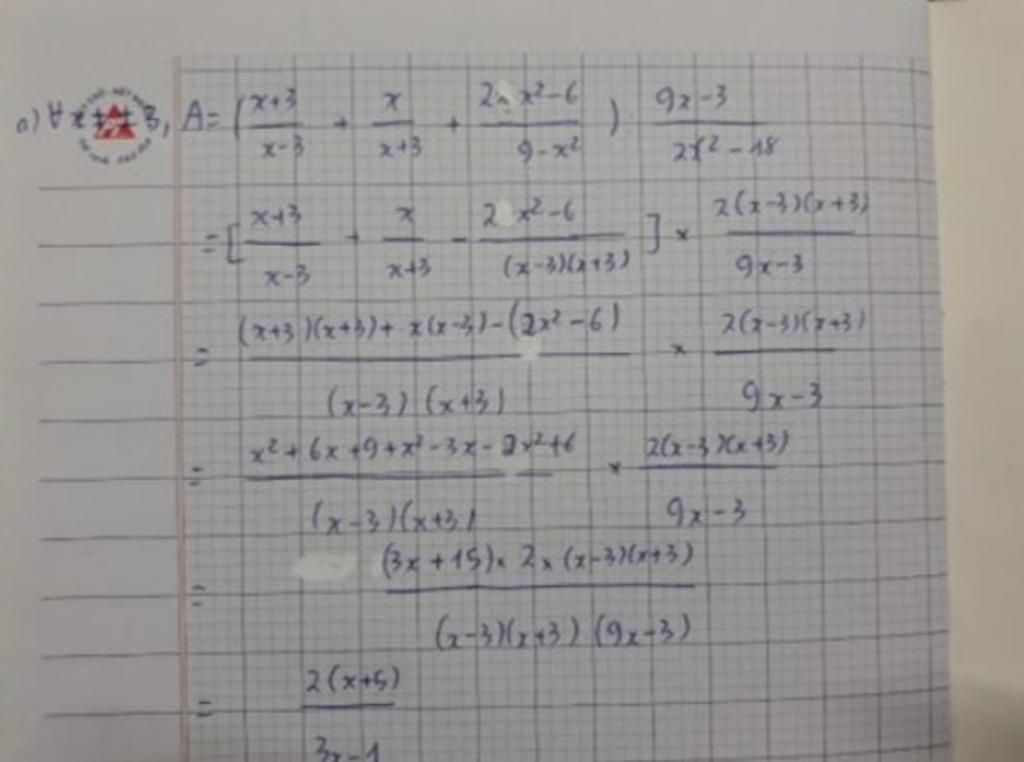 a) ∀ x ≠ ± 3, A = ( (x+3)/(x-3) + x/(x+3) + (2x²-6)/(9-x²) ) : (9x-3)/(2x²-18)
= [ (x+3)/(x-3) + x/(x+3) - (2x²-6)/((x-3)(x+3)) ] × 2(x-3)(x+3)/(9x-3)
= ((x+3)(x+3) + x(x-3) - (2x²-6))/((x-3)(x+3)) × 2(x-3)(x+3)/(9x-3)
= (x²+6x+9+x²-3x-2x²+6)/((x-3)(x+3)) × 2(x-3)(x+3)/(9x-3)
= ((3x+15) × 2 × (x-3)(x+3))/((x-3)(x+3)(9x-3))
= 2(x+5)/(3x-1)